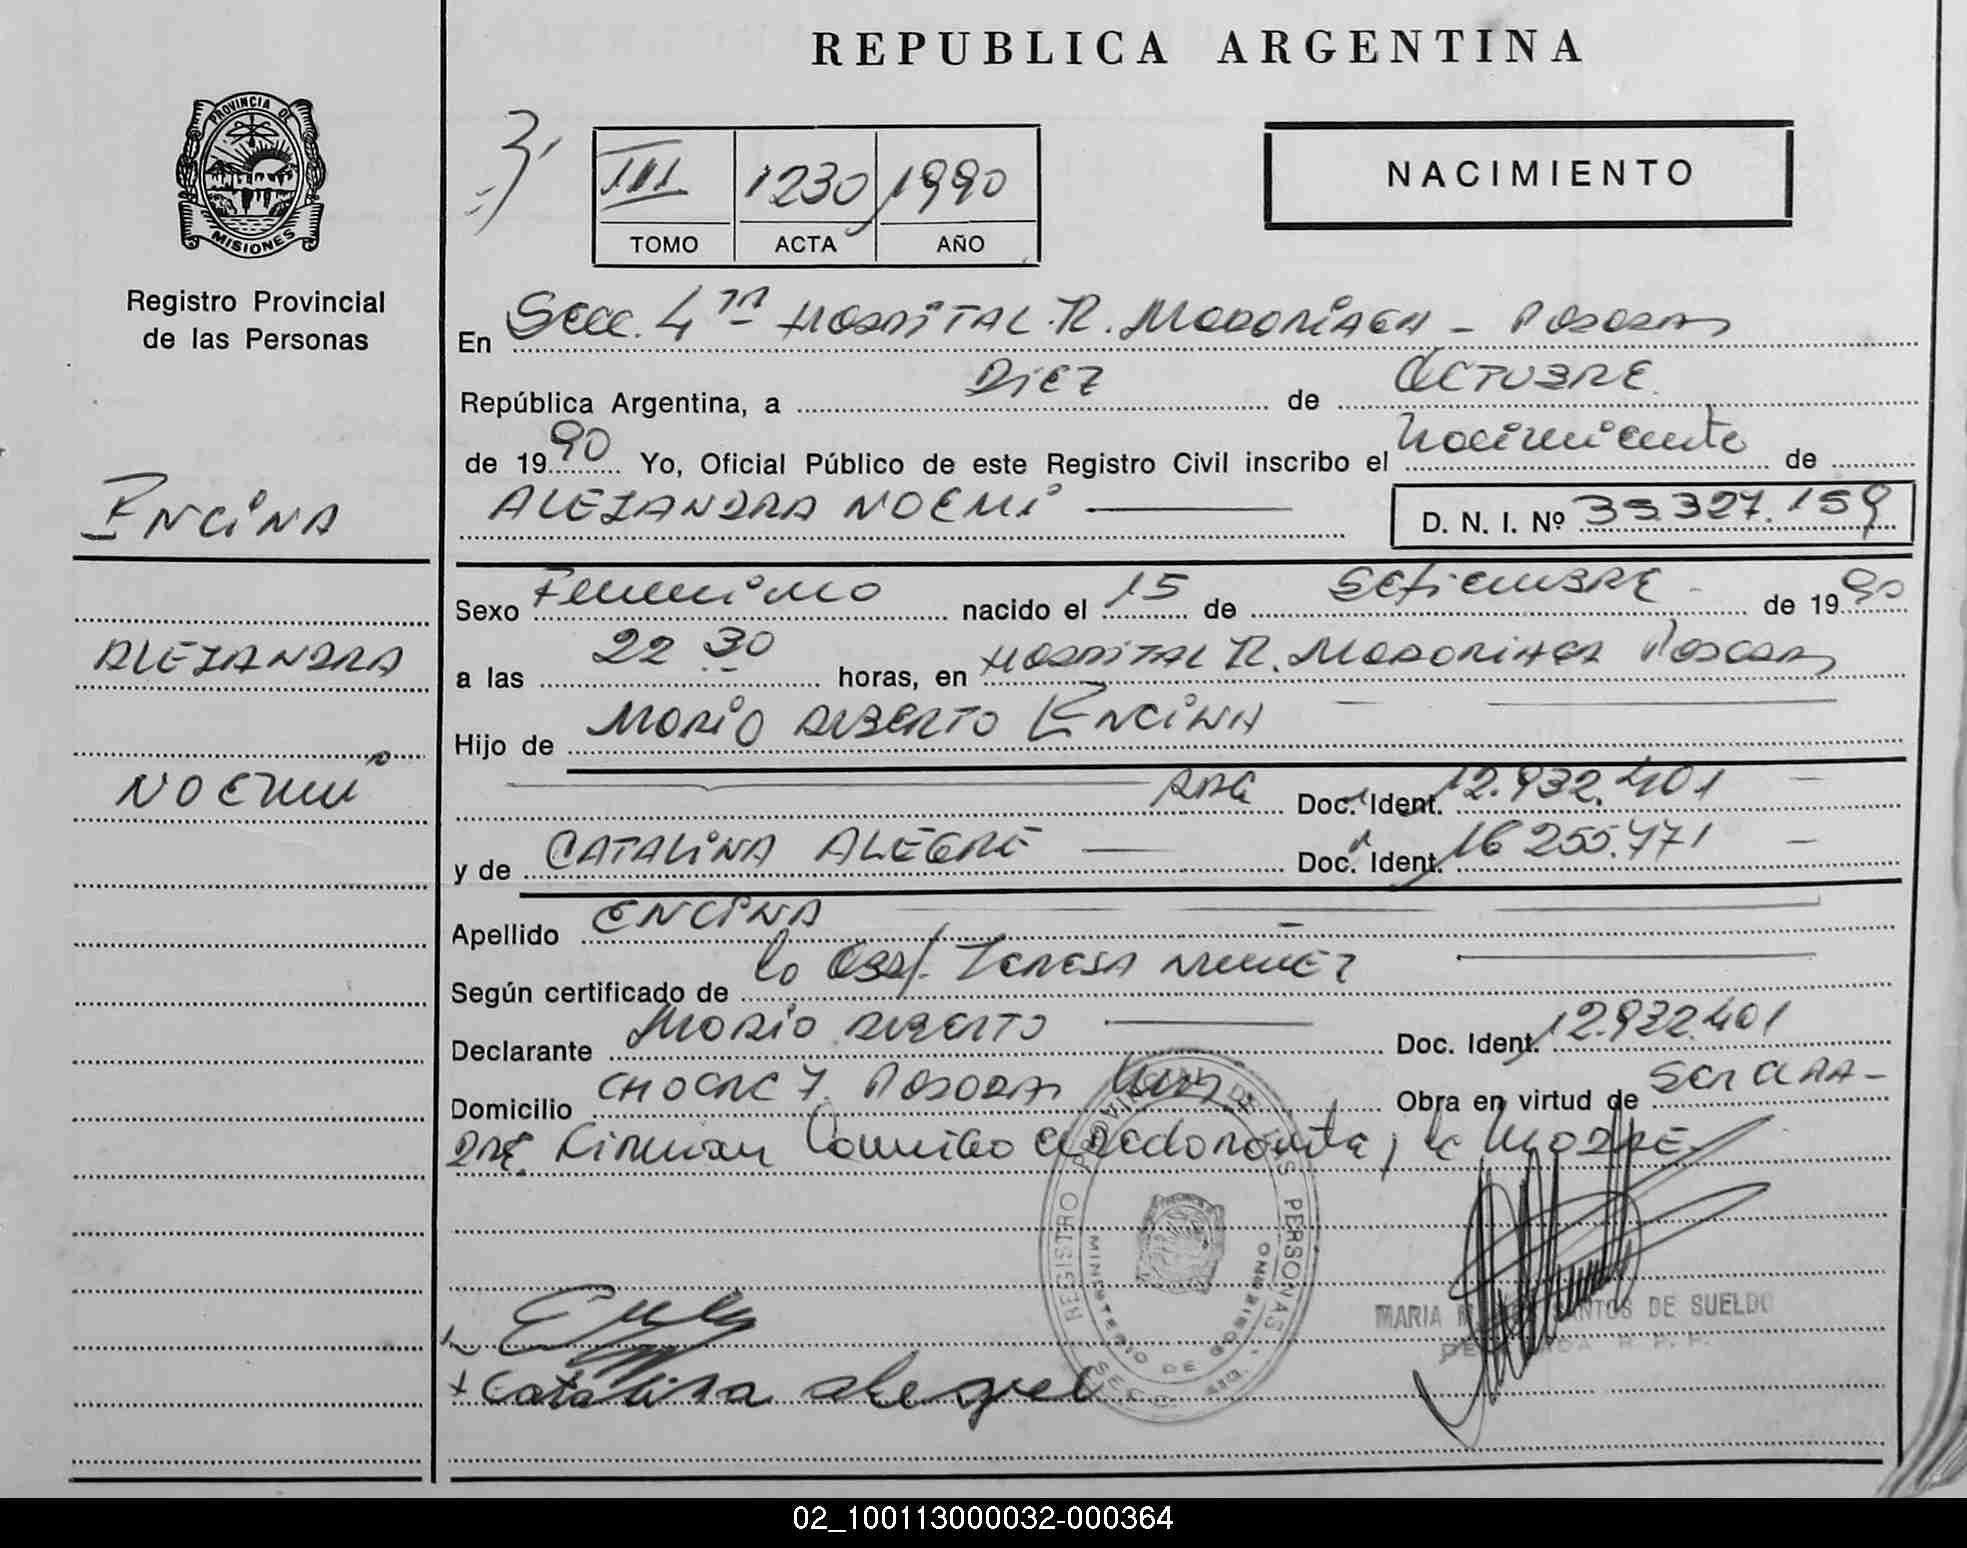 REPUBLICA ARGENTINA
PROVINCIA DE
MISIONES
Registro Provincial
de las Personas
III 1230 1990
TOMO ACTA AÑO
NACIMIENTO
En Secc. 4ta Hospital R. Madariaga - Posadas
República Argentina, a Diez de Octubre
de 1990 Yo, Oficial Público de este Registro Civil inscribo el nacimiento de
ALEJANDRA NOEMI
D. N. I. Nº 35.327.159
ENCINA
ALEJANDRA
NOEMI
Sexo Femenino nacido el 15 de Setiembre de 1990
a las 22 30 horas, en Hospital R. Madariaga Posadas
Hijo de Mario Alberto Encina
ARG Doc. Ident. 12.932.401
y de CATALINA ALEGRE Doc. Ident. 16.255.771
Apellido ENCINA
Según certificado de la Obst. Teresa Nuñez
Declarante Mario Alberto Doc. Ident. 12.932.401
Domicilio Posadas Mnes Obra en virtud de Ser el PA-
DRE. Firman Conmigo el declarante, la MADRE.
REGISTRO PROVINCIAL DE LAS PERSONAS
MINISTERIO DE GOBIERNO
MARIA SANTOS DE SUELDO
R. P. P.
Catalina Alegre
02_100113000032-000364